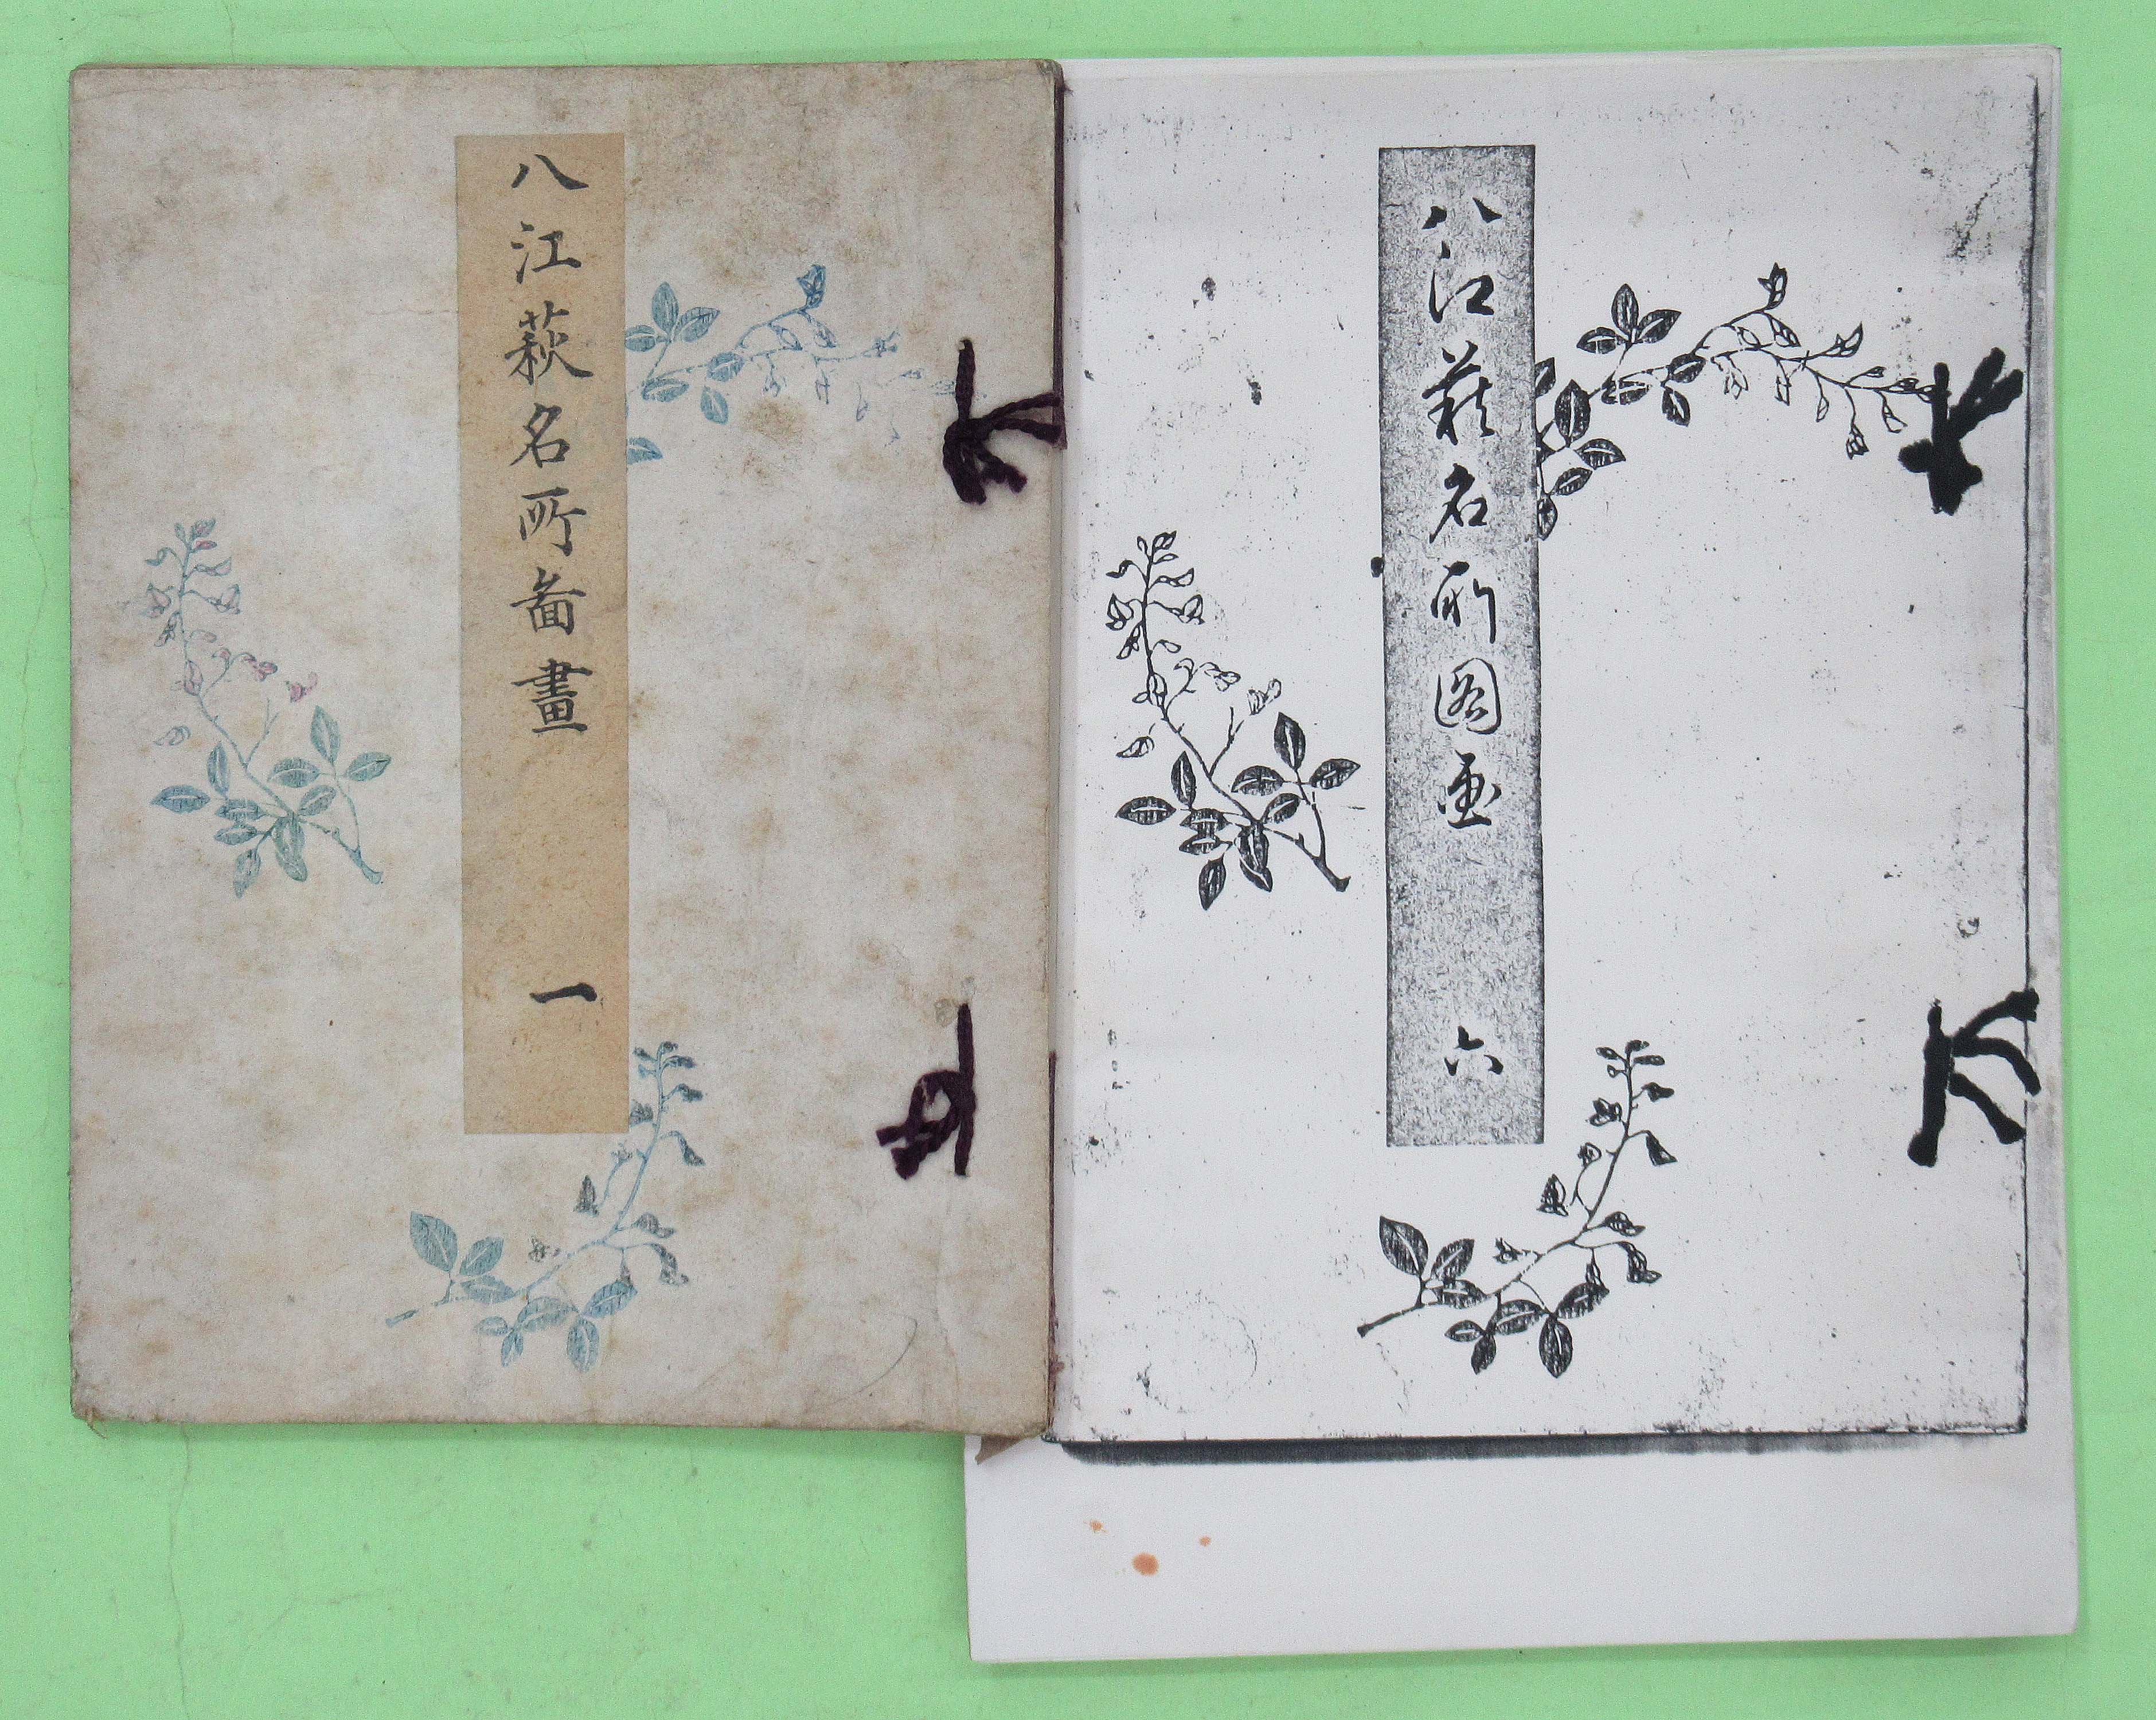 八江萩名所圖畫 一
八江萩名所图画 六